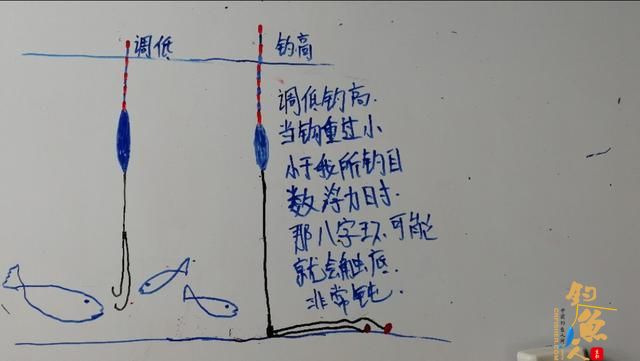 调低
钓高
调低钓高.
当钩重过小
小于我所钓目
数浮力时.
那八字环可能
就会触底.
非常钝.
钓鱼人